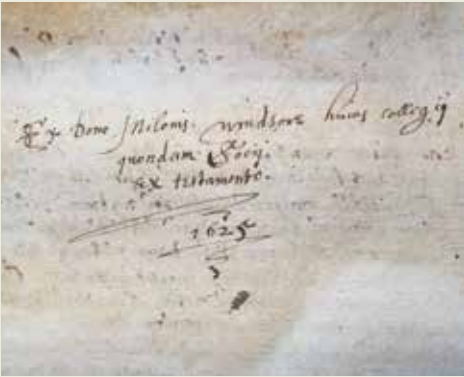 Ex dono Milonis windsore huius collegij
quondam Socij.
ex testamento.
1625